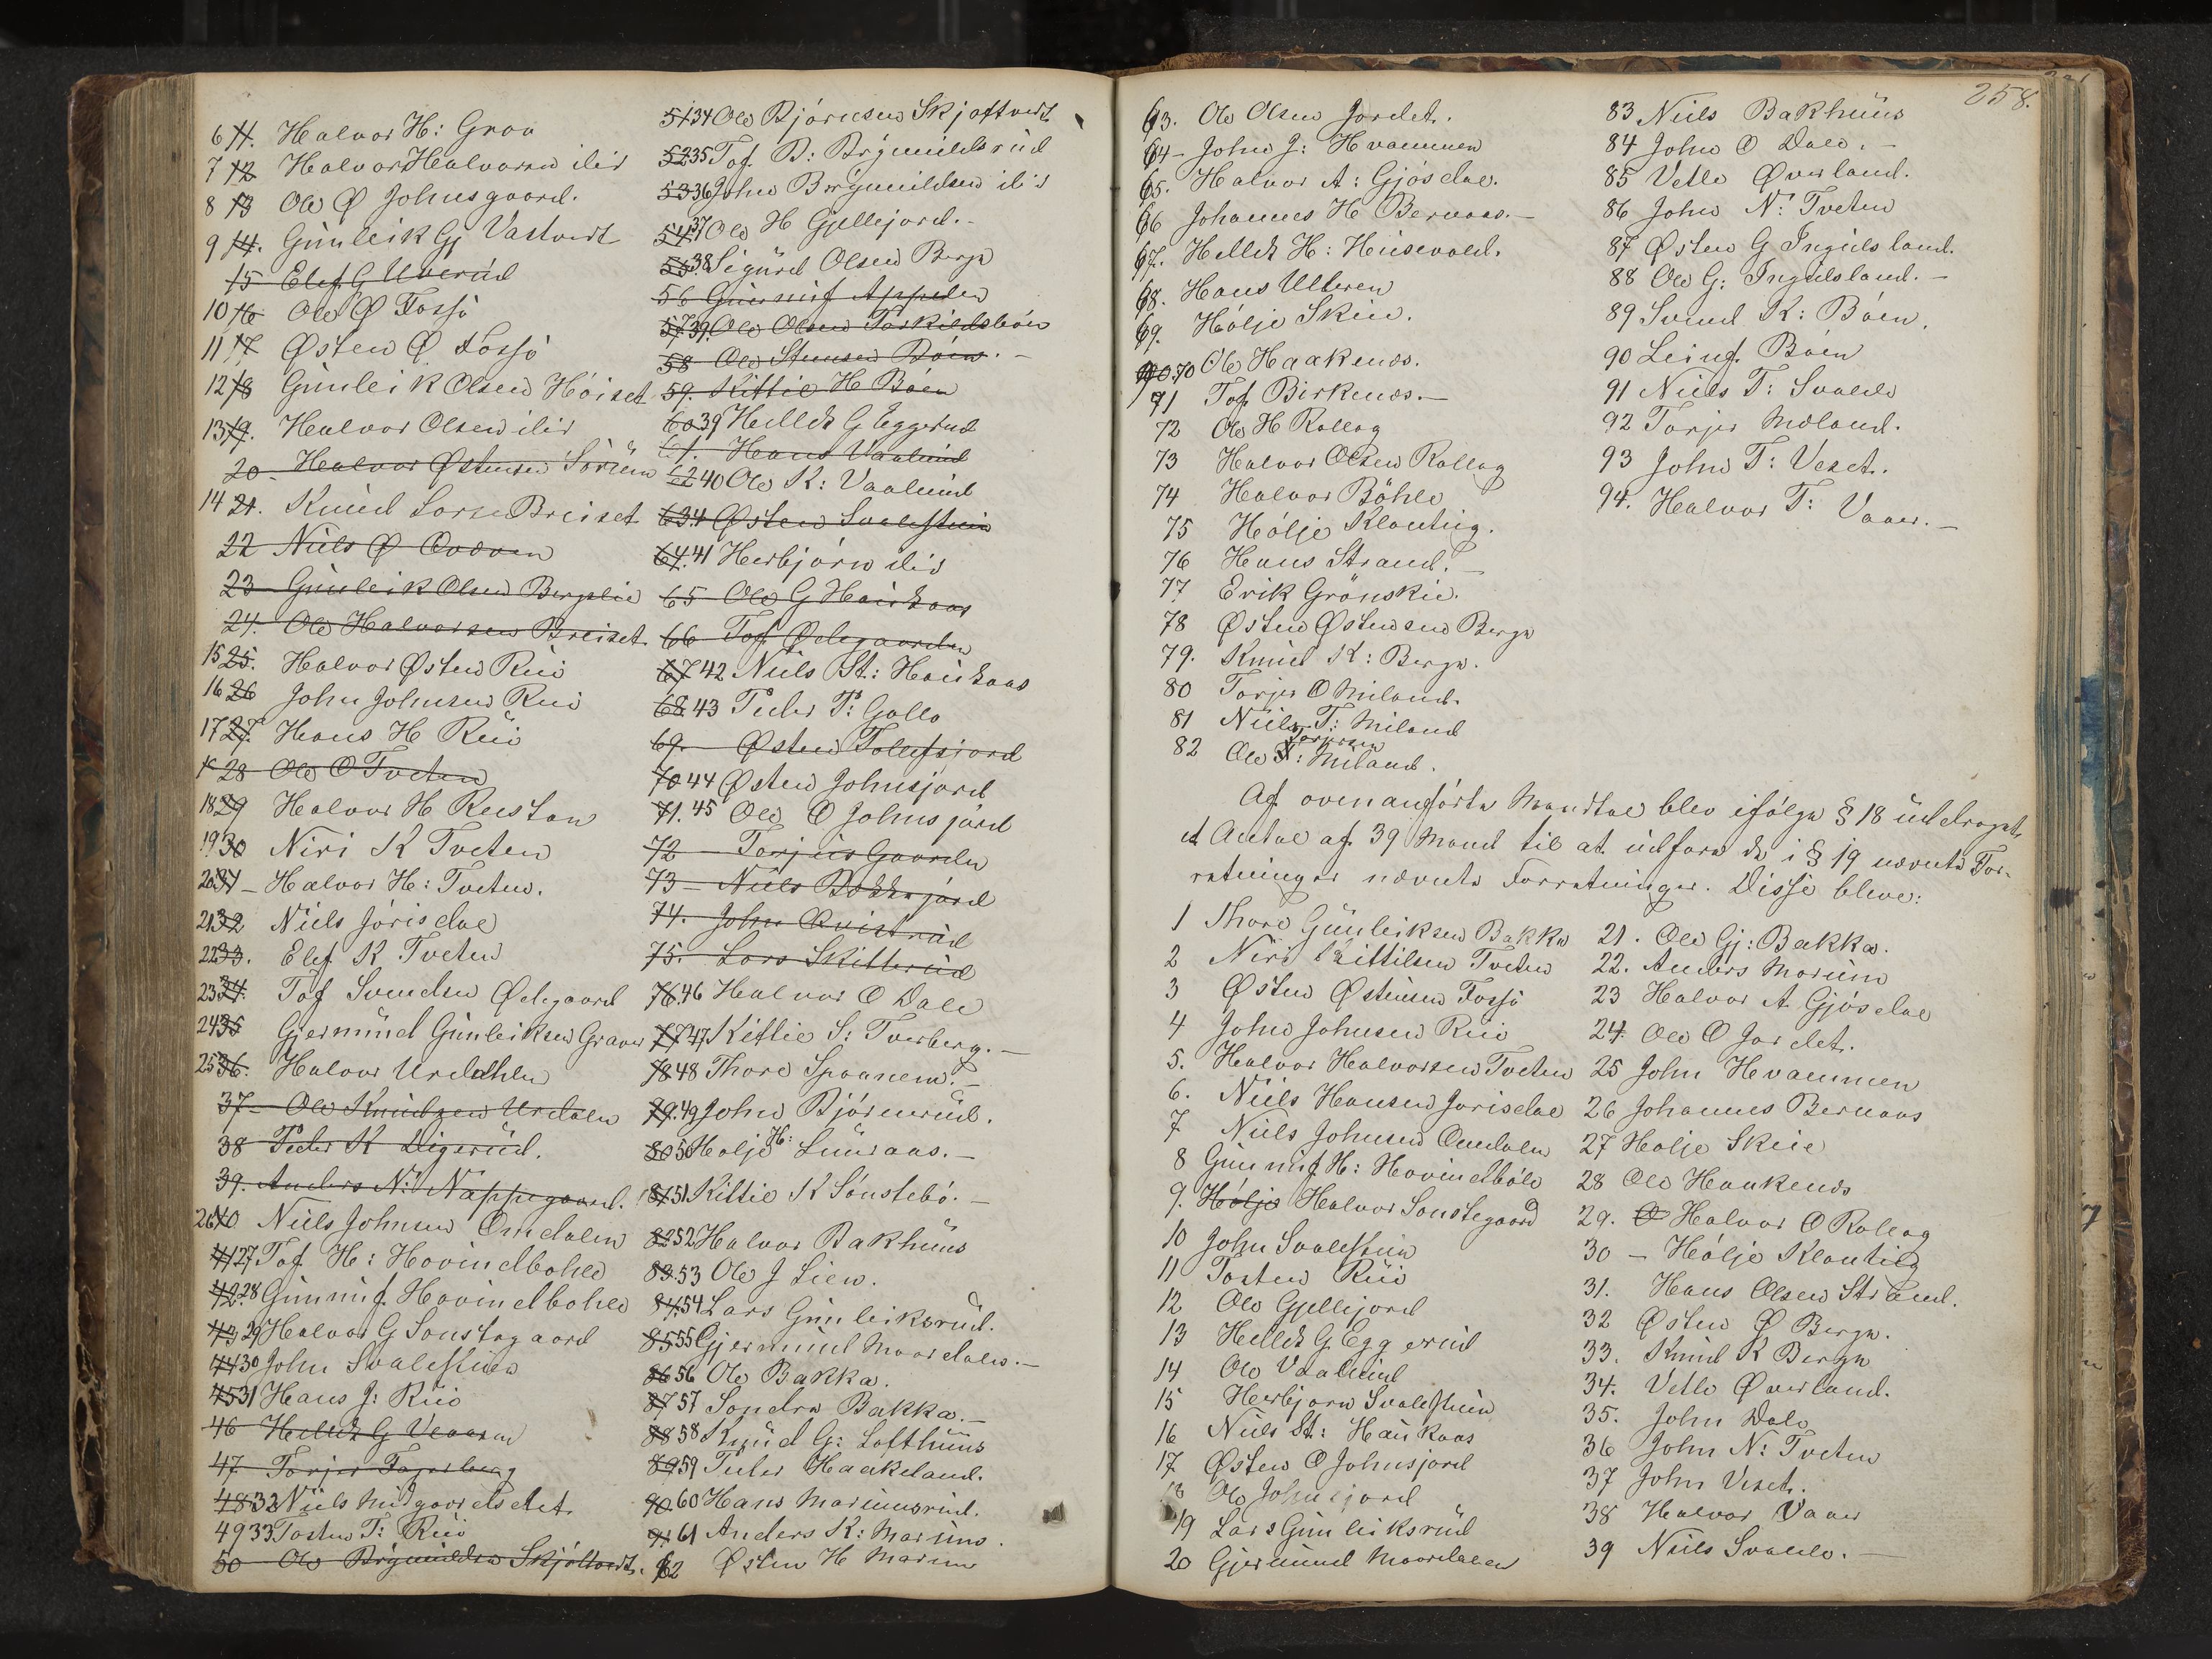 6 11. Halvor H: Grou
7 12 Halvor Halvorsen ibid
8 13 Ole Ø Johnsgaard.
9 14. Gunleik Gj Vastveit
15 Elef G Uverud
10 16 Ole Ø Fossø
11 17 Østen Ø Fossø
12 18 Gunleik Olsen Høiset
13 19. Halvor Olsen ibid
20 Halvor Østensen Sørum
14 21. Knud Larsen Breiset
22 Niels Ø
23 Gunleik Olsen Bergslie
24. Ole Halvorsen Breiset.
15 25. Halvor Østen Rui
16 26 John Johnsen Rui
17 27. Hans H Rui
18 28 Ole O Tveten
18 29 Halvor H Reistan
19 30 Niri K Tveten
20 31 – Halvor H: Tveten.
21 32 Niels Jørisdal
22 33. Elef K Tveten
23 34. Tof Svendsen Ødegaard
24 35 Gjermund Gunleiksen Graver
25 36. Halvor Urdahlen
37 – Ole Knudsen Urdalen
38 Peder K Digerud.
39. Anders N: Nappegaard.
26 40 Niels Johnsen Omdalen
41 27 Tof H: Hovindbøhle
42. 28 Gunnuf Hovindbohle
43 29 Halvor G Sønstegaard
44 30 John Svalestuen
45 31 Hans J: Rui
46 Hellek G Veaasen
47. Torjer Fagerberg
48 32 Niels Midgaardsdet.
49 33 Tosten T: Rui
50 Ole Brynnildsen Skjøltveit.
51 34 Ole Bjørnsen Skjøltveit
52 35 Tof B: Brynnildsrud
53 36 John Brynnildsen ibid
54. 37 Ole H Gjellejord. –
55 38. Sigurd Olsen Berge
56 Gunnuf Appelen
57 39. Ole Olsen Torkildsbøen
58 Ole Steensen Bøen. –
59. Kittil H Bøen
60 39 Hellek G Eggerud
61. Hans Vaalund
62 40 Ole K: Vaalund
63 4 Østen Svalestuen
64. 41 Herbjørn ibid
65 Ole G Haukaas
66 Tof Ødegaarden
67 42 Niels St: Haukaas
68 43 Peder P: Gallo
69. – Østen Tollefsjord
70 44 Østen Johnsjord
71. 45 Ole O Johnsjord
72 – Torjus Gaarden
73 – Niels Bokkejord
74. John Qvistrud
75. Lars Skitterud
76. 46 Halvor O Dale
77 47 Kittil S: Tverberg. –
78 48 Thore Spaanem. –
79. 49 John Bjørnerud.
80 50 Holje H: Luuraas. –
81 51 Kittil K Sønstebø. –
82 52 Halvor Bakhuus
83. 53 Ole J Lien.
84. 54 Lars Gunleiksrud.
85 55 Gjermund Maardalen. –
86 56 Ole Bakka.
87 57 Sondre Bakka. –
88 58 Knud G: Lofthuus
89 59 Peder Haakeland.
90. 60 Hans Mariusrud.
91 61 Anders K: Marum.
62 Østen H Marum
258.
63. Ole Olsen Jordet.
64 – John J: Hvammen
65. Halvor A: Gjøsdal.
66 Johannes H Bernaas. –
67. Hellek H: Husevold.
68. Hans Ulteren
69. Hølje Skeie.
70 Ole Haakenæs.
71 Tof Birkenæs. –
72 Ole H Rollag
73 Halvor Olsen Rollag
74 Halvor Bøhle
75 Hølje Klonteig.
76 Hans Strand. –
77 Erik Grønskei.
78 Østen Østensen Berge
79. Knud K: Berge.
80 Torjer O Miland.
81 Niels T: Miland
82 Ole Torjersen Miland.
83 Niels Bakhuus
84 John O Dale. –
85 Vetle Øverland.
86 John N: Tveten
87 Østen G Ingulsland.
88 Ole G: Ingulsland. –
89 Svend K: Bøen.
90 Leiuf Bøen
91 Niels T: Svalde
92 Torjer Mæland.
93 John T: Veset.
94. Halvor T: Vaaer. –
Af ovenanførte Mandtal blev ifølge § 18 uddraget
et Antal af 39 Mand til at udføre de i § 19 nævnte For-
retninger nævnte Forretninger. Disse bleve:
1 Thore Gunleiksen Bakka
2 Niri Kittilsen Tveten
3 Østen Østensen Fossø
4 John Johnsen Rui
5. Halvor Halvorsen Tveten
6. Niels Hansen Jørisdal
7 Niels Johnsen Omdalen
8 Gunnuf H: Hovindbøle
9. Hølje Halvor Sønstegaard
10 John Svalestuen
11 Tosten Rui
12 Ole Gjellejord
13 Hellek G Eggerud
14 Ole Vaalund
15 Herbjørn Svalestuen
16 Niels St: Haukaas
17 Østen O Johnsjord
18 Ole Johnsjord
19 Lars Gunleiksrud
20 Gjermund Maardalen
21. Ole Gj: Bakka.
22. Anders Marum
23 Halvor A Gjøsdal
24. Ole O Jordet.
25 John Hvammen
26 Johannes Bernaas
27 Holje Skeie
28 Ole Haakenæs
29. O Halvor O Rollag
30 – Hølje Klonteig
31. Hans Olsen Strand.
32 Østen Ø Berge.
33. Knud K Berge
34. Vetle Øverland.
35. John Dale
36 John N: Tveten
37 John Veset.
38 Halvor Vaaer
39 Niels Svalde. –